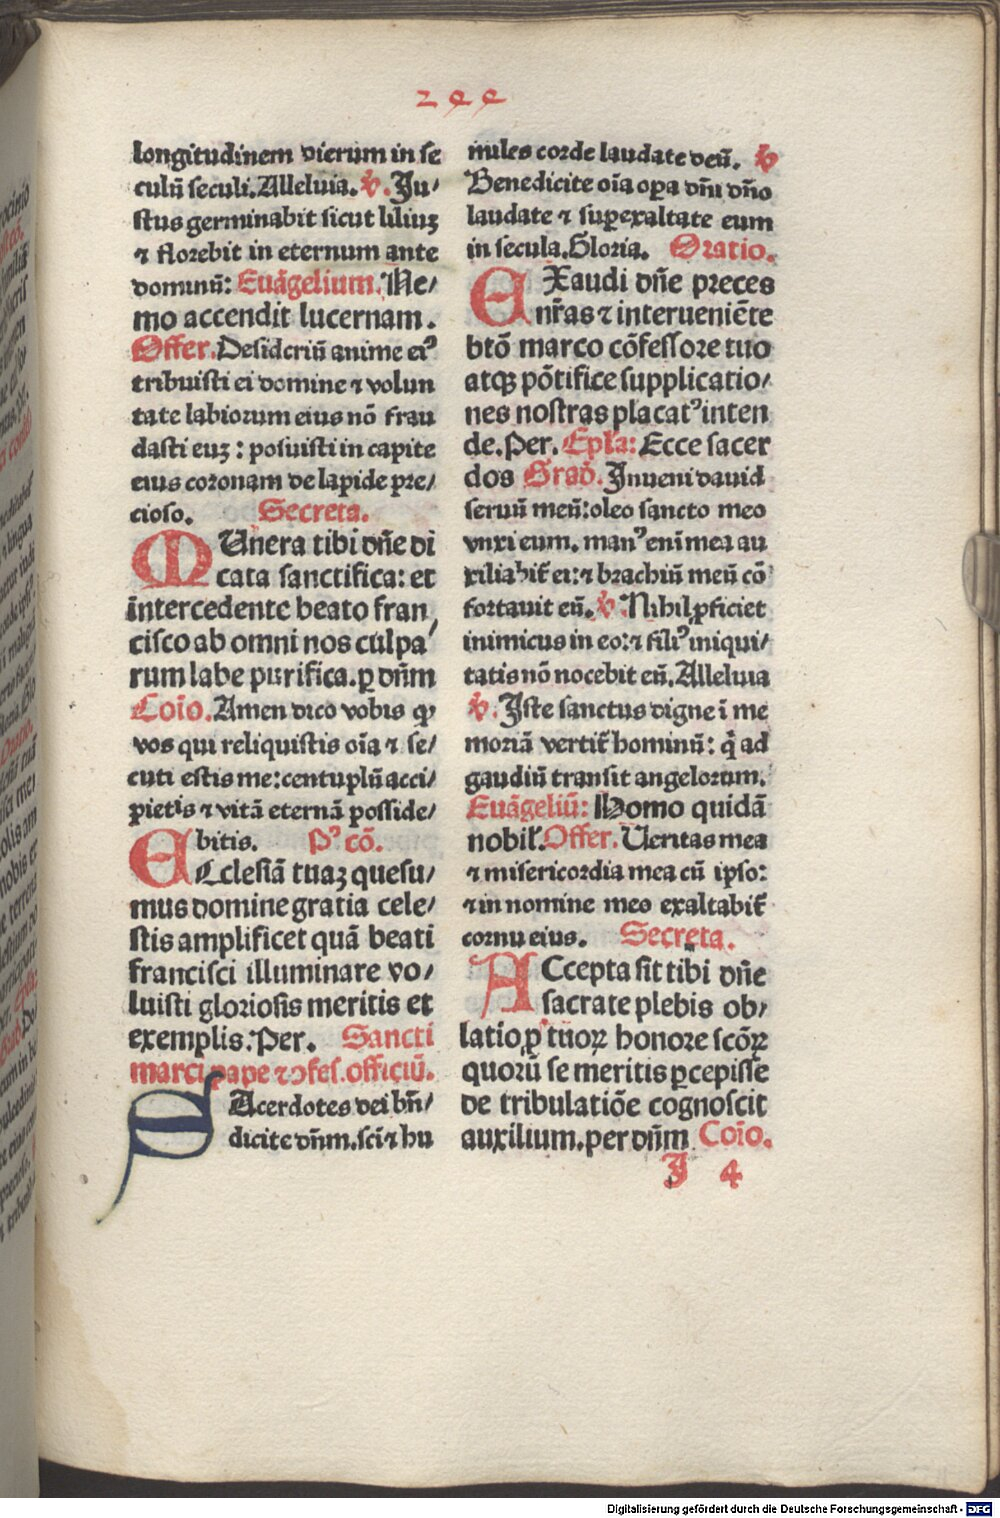 2ee
longitudinem dierum in se
culū seculi. Alleluia. ℣. Ju/
stus germinabit sicut liliuꝫ
⁊ florebit in eternum ante
dominū: Euāgelium. Ne/
mo accendit lucernam.
Offer. Desideriū anime eiꝰ
tribuisti ei domine ⁊ volun
tate labiorum eius nō frau
dasti euꝫ : posuisti in capite
eius coronam de lapide pre/
cioso. Secreta.
MUnera tibi dn̄e di
cata sanctifica: et
intercedente beato fran/
cisco ab omni nos culpa
rum labe purifica. ꝑ dn̄m
Coīo. Amen dico vobis ꝙ
vos qui reliquistis oīa ⁊ se/
cuti estis me: centuplū acci/
pietis ⁊ vitā eternā posside/
bitis. Pꝰ cō.
ECclesiā tuaꝫ quesu/
mus domine gratia cele/
stis amplificet quā beati
francisci illuminare vo/
luisti gloriosis meritis et
exemplis. Per. Sancti
marci pape ⁊ ɔfes. officiū.
SAcerdotes dei bn̄/
dicite dn̄m. sc̄i ⁊ hu
miles corde laudate deū. ℣
Benedicite oīa oꝑa dn̄i dn̄o
laudate ⁊ suꝑexaltate eum
in secula. Gloria. Oratio.
EXaudi dn̄e preces
nr̄as ⁊ interueniēte
btō marco cōfessore tuo
atqꝫ pōtifice supplicatio/
nes nostras placatꝰ inten
de. Per. Epl̄a: Ecce sacer
dos Grad̄. Jnueni dauid
seruū meū: oleo sancto meo
vnxi eum. manꝰ eni̅ mea au
xiliabit̄ ei: ⁊ brachiū meū cō
fortauit eū. ℣. Nihil ꝓficiet
inimicus in eo: ⁊ filiꝰ iniqui/
tatis nō nocebit eū. Alleluia
℣. Jste sanctus digne ī me
moriā vertit̄ hominū: q̄ ad
gaudiū transit angelorum.
Euāgeliū: Homo quidā
nobil̄. Offer. Ueritas mea
⁊ misericordia mea cū ipso:
⁊ in nomine meo exaltabit̄
cornu eius. Secreta.
ACcepta sit tibi dn̄e
sacrate plebis ob/
latio ꝓ tuoꝝ honore scōꝝ
quorū se meritis ꝑcepisse
de tribulatiōe cognoscit
auxilium. per dn̄m Coīo.
J 4
Digitalisierung gefördert durch die Deutsche Forschungsgemeinschaft - DFG